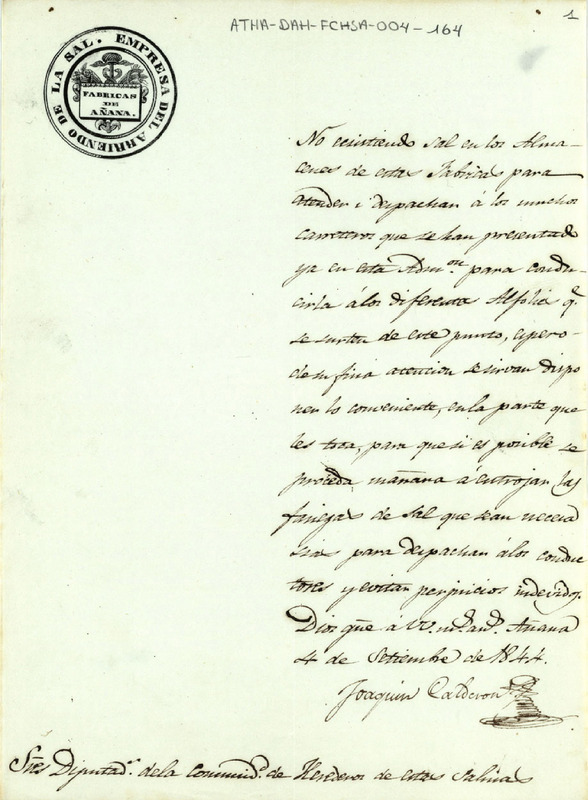 ATHA-DAH-FCHSA-004-164
1
EMPRESA DEL ARRIENDO DE LA SAL.
FABRICAS
DE
AÑANA.
No existiendo sal en los Alma-
cenes de estas Fabricas para
atender i despachar á los muchos
carreteros que se han presentado
ya en esta Admon. para condu
cirla á los diferentes Alfolies q.
se surten de este punto, espero
de su fina atencion se sirvan dispo
ner lo conveniente, en la parte que
les toca, para que si es posible se
proceda mañana á entrojar las
fanegas de sal que sean necesa
rias para despachar á los conduc
tores y evitar perjuicios indevidos.
Dios gue. á VV. ms. as. Añana
4 de Setiembre de 1844.
Joaquin Calderon
Sres. Diputads. de la Comunidd. de Herederos de estas Salinas